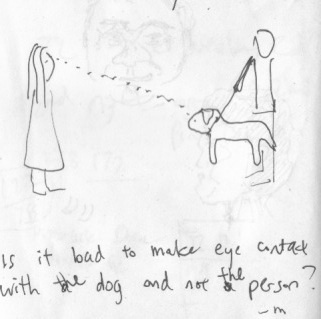 is it bad to make eye contact
with the dog and not the person?
-m